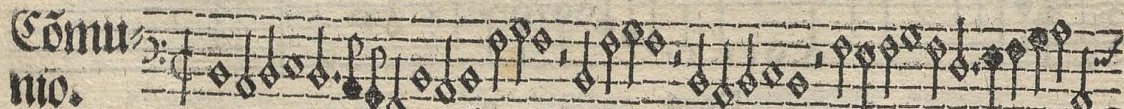 Cõmu⸗
nio.